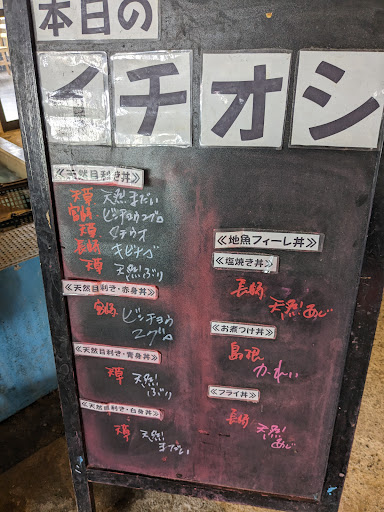 本日の
イチオシ
≪天然目利き丼≫
天草 天然まだい
宮崎 ビンチョウマグロ
天草 タチウオ
長崎 キビナゴ
天草 天然ぶり
≪天然目利き・赤身丼≫
宮崎 ビンチョウ
マグロ
≪天然目利き・青身丼≫
天草 天然
ぶり
≪天然目利き・白身丼≫
天草 天然
まだい
≪地魚フィーレ丼≫
≪塩焼き丼≫
長崎 天然あじ
≪お煮つけ丼≫
島根
かれい
≪フライ丼≫
長崎 天然
あじ